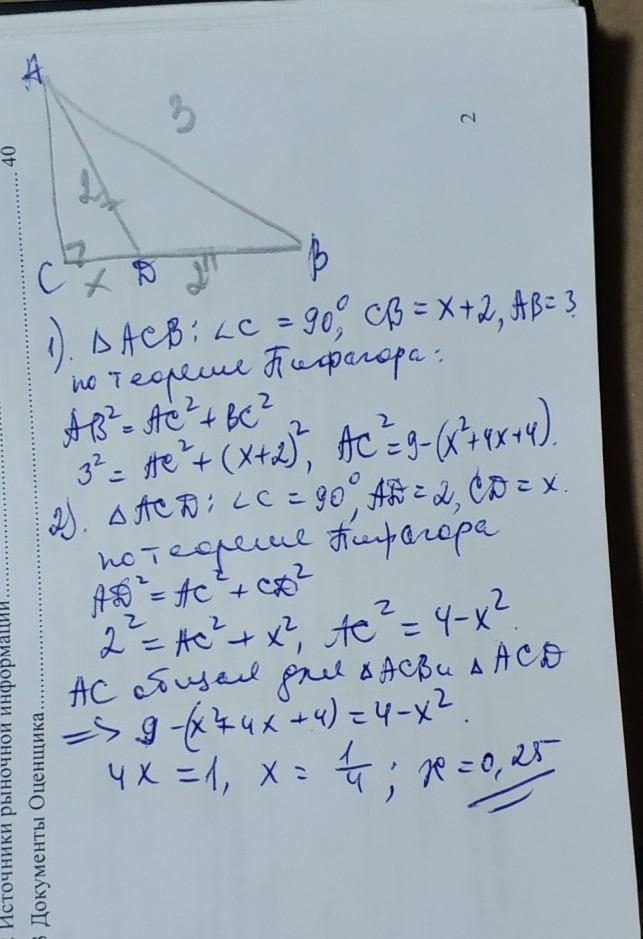 A
3
2
2
C
x
D
2
B
1). △ACB: ∠C = 90°, CB = x+2, AB = 3.
по теореме Пифагора:
AB² = AC² + BC²
3² = AC² + (x+2)², AC² = 9-(x²+4x+4).
2). △ACD: ∠C = 90°, AD = 2, CD = x.
по теореме Пифагора
AD² = AC² + CD²
2² = AC² + x², AC² = 4-x².
AC общая для △ACB и △ACD
=> 9-(x²+4x+4) = 4-x².
4x = 1, x = 1/4; x = 0,25
Источники рыночной информации.......... 40
Документы Оценщика..........